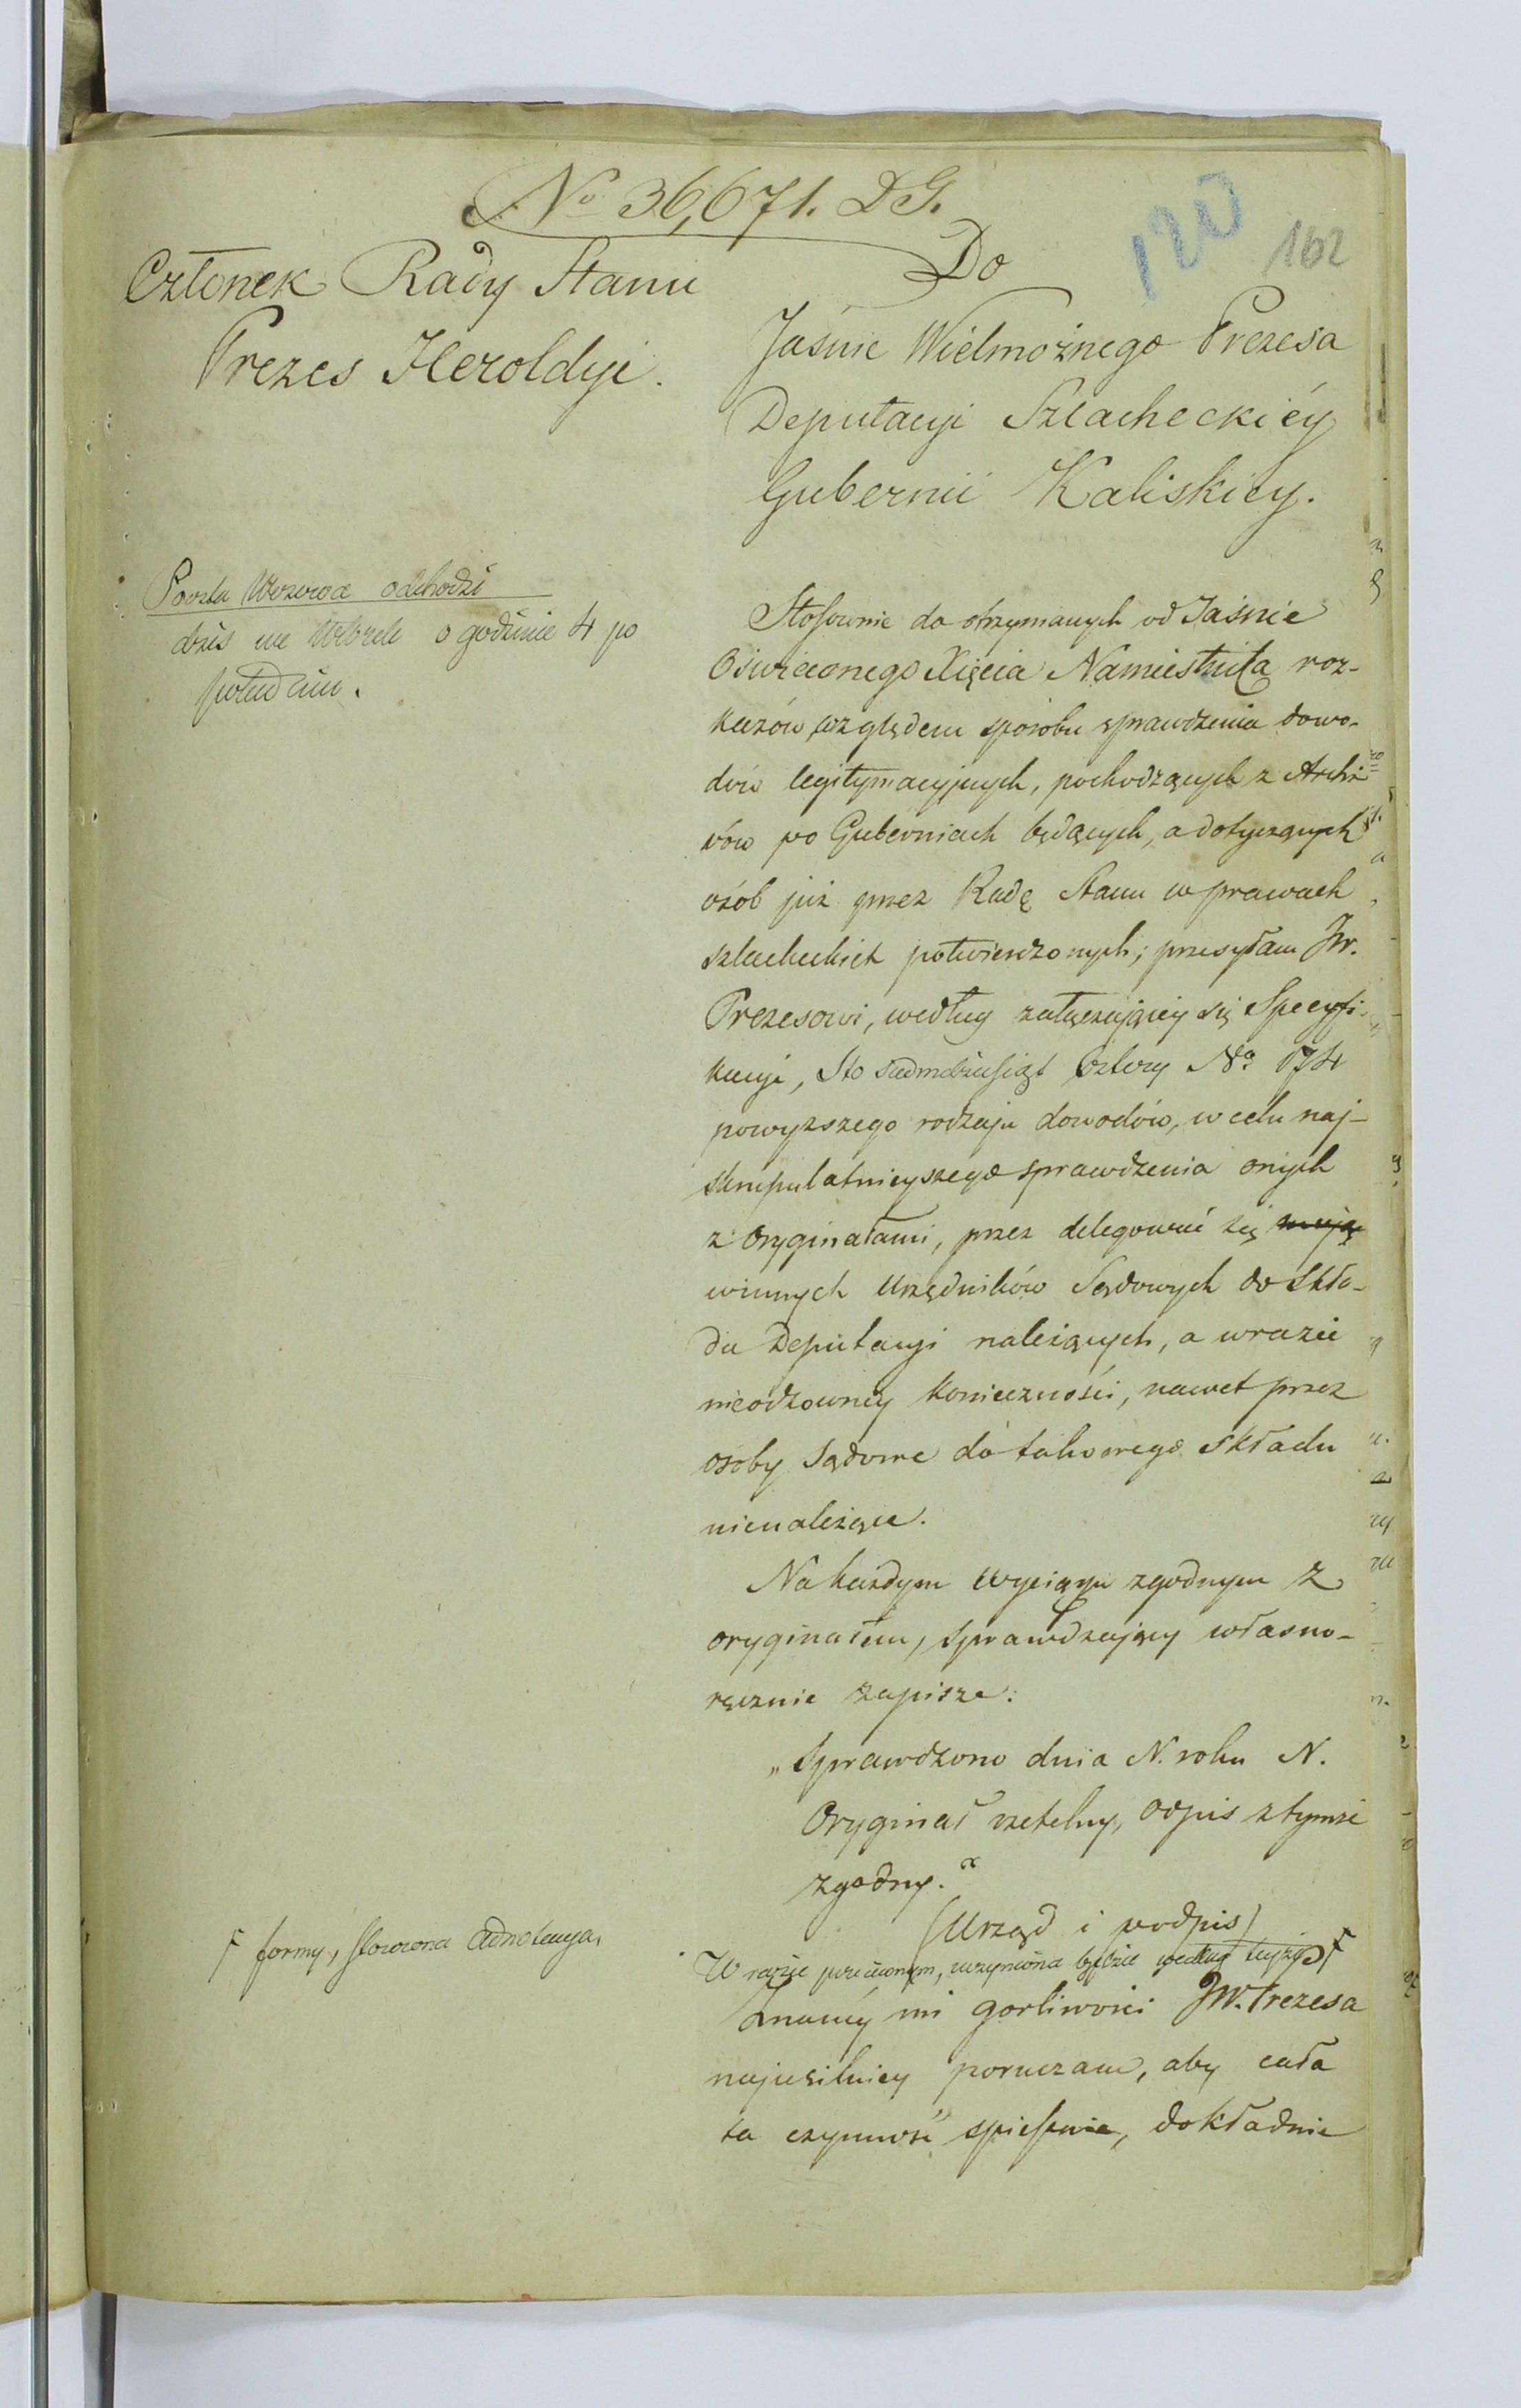 No 36,671. DG.
120
162
Członek Rady Stanu
Prezes Heroldyi.
Do
Jaśnie Wielmożnego Prezesa
Deputacyi Szlacheckiéy
Gubernii Kaliskiey.
Poczta Wozowa odchodzi
dziś we Wtorek o godzinie 4 po
południu.
Stosownie do otrzymanych od Jaśnie
Oświeconego Xięcia Namiestnika roz-
kazów, względem sposobu sprawdzenia dowo-
dów legitymacyjnych, pochodzących z Archi
wów po Guberniach będących, a dotyczących
osób już przez Radę Stanu w prawach
szlacheckich potwierdzonych; przesyłam JW.
Prezesowi, według załączającey się Specyfi-
kacyi, Sto siedmdziesiąt cztery No 174
powyższego rodzaju dowodów, w celu naj-
skrupulatnieyszego sprawdzenia onych
z oryginałami, przez delegować się mają
winnych Urzędników Sądowych do Skła-
du Deputacyi należących, a w razie
nieodzowney konieczności, nawet przez
osoby Sądowe do takowego składu
nienależące.
Na każdym wyciągu zgodnym z
oryginałem, sprawdzający własno-
ręcznie zapisze:
„Sprawdzono dnia N. roku N.
Oryginał rzetelny, odpis z tymże
zgodny."
(Urząd i podpis)
W razie przeciwnym, uczyniona będzie według teyże
formy, stosowna adnotacya.
Znanéy mi gorliwości JW. Prezesa
najusilniey poruczam, aby cała
ta czynność spiesznie, dokładnie